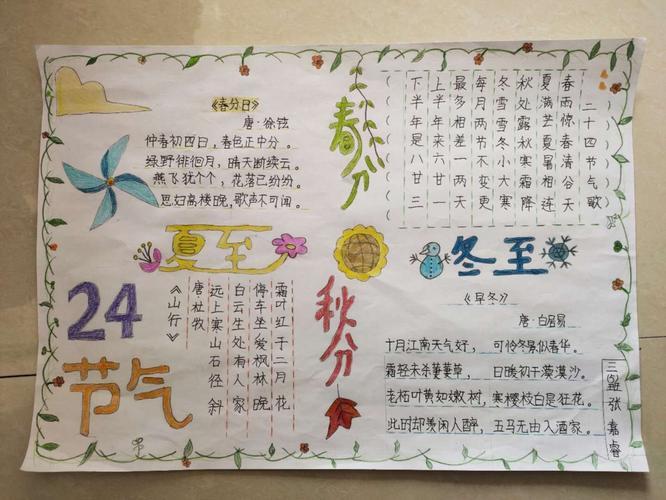 《春分日》
唐·徐铉
仲春初四日，春色正中分。
绿野徘徊月，晴天断续云。
燕飞犹个个，花落已纷纷。
思妇高楼晚，歌声不可闻。
春分
二十四节气歌
春雨惊春清谷天
夏满芒夏暑相连
秋处露秋寒霜降
冬雪雪冬小大寒
每月两节不变更
最多相差一两天
上半年来六廿一
下半年是八廿三
夏至
24
节气
《山行》
唐·杜牧
远上寒山石径斜
白云生处有人家
停车坐爱枫林晚
霜叶红于二月花
秋分
冬至
《早冬》
唐·白居易
十月江南天气好，可怜冬景似春华。
霜轻未杀萋萋草，日暖初干漠漠沙。
老柘叶黄如嫩树，寒樱枝白是狂花。
此时却羡闲人醉，五马无由入酒家。
张嘉睿